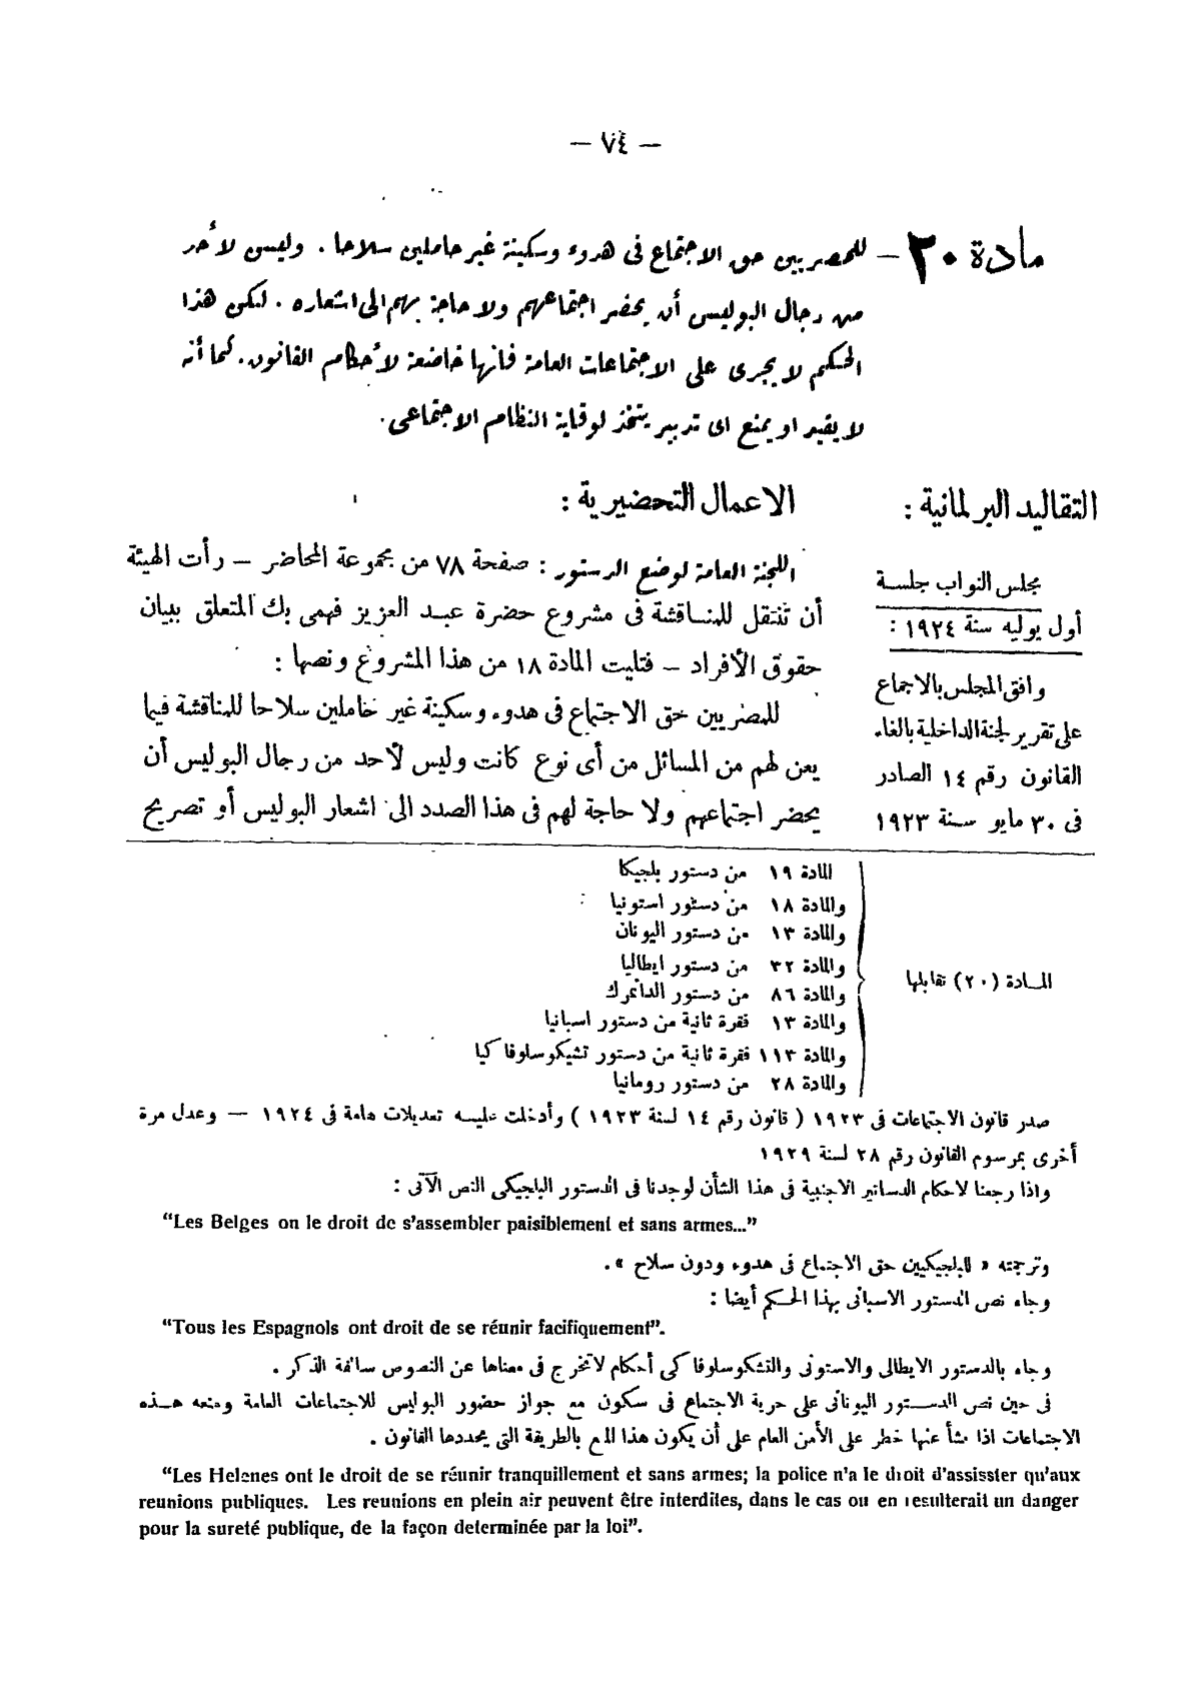 — ٧٤ —
مادة ٢٠ — للمصريين حق الاجتماع فى هدوء وسكينة غير حاملين سلاحا . وليس لأحد
من رجال البوليس أن يحضر اجتماعهم ولا حاجة بهم الى اشعاره . لكن هذا
الحكم لا يجرى على الاجتماعات العامة فانها خاضعة لأحكام القانون . كما أنه
لا يقيد او يمنع اى تدبير يتخذ لوقاية النظام الاجتماعى .
التقاليد البرلمانية :
مجلس النواب جلسة
أول يوليه سنة ١٩٢٤ :
وافق المجلس بالاجماع
على تقرير لجنة الداخلية بالغاء
القانون رقم ١٤ الصادر
فى ٣٠ مايو سنة ١٩٢٣
الاعمال التحضيرية :
اللجنة العامة لوضع الدستور : صفحة ٧٨ من مجموعة المحاضر — رأت الهيئة
أن تنتقل للمناقشة فى مشروع حضرة عبد العزيز فهمى بك المتعلق ببيان
حقوق الأفراد — فتليت المادة ١٨ من هذا المشروع ونصها :
للمصريين حق الاجتماع فى هدوء وسكينة غير حاملين سلاحا للمناقشة فيما
يعن لهم من المسائل من أى نوع كانت وليس لأحد من رجال البوليس أن
يحضر اجتماعهم ولا حاجة لهم فى هذا الصدد الى اشعار البوليس أو تصريح
المادة (٢٠) تقابلها
المادة ١٩ من دستور بلجيكا
والمادة ١٨ من دستور استونيا
والمادة ١٣ من دستور اليونان
والمادة ٣٢ من دستور ايطاليا
والمادة ٨٦ من دستور الدانمرك
والمادة ١٣ فقرة ثانية من دستور اسبانيا
والمادة ١١٣ فقرة ثانية من دستور تشيكوسلوفاكيا
والمادة ٢٨ من دستور رومانيا
صدر قانون الاجتماعات فى ١٩٢٣ ( قانون رقم ١٤ لسنة ١٩٢٣ ) وأدخلت عليه تعديلات هامة فى ١٩٢٤ — وعدل مرة
أخرى بمرسوم القانون رقم ٢٨ لسنة ١٩٢٩
واذا رجعنا لاحكام الدساتير الاجنبية فى هذا الشأن لوجدنا فى الدستور البلجيكى النص الآتى :
“Les Belges on le droit de s’assembler paisiblement et sans armes...”
وترجمته « للبلجيكيين حق الاجتماع فى هدوء ودون سلاح » .
وجاء نص الدستور الاسبانى بهذا الحكم أيضا :
“Tous les Espagnols ont droit de se réunir facifiquement”.
وجاء بالدستور الايطالى والاستونى والتشكوسلوفاكى أحكام لا تخرج فى معناها عن النصوص سالفة الذكر .
فى حين نص الدستور اليونانى على حرية الاجتماع فى سكون مع جواز حضور البوليس للاجتماعات العامة ومنعه هذه
الاجتماعات اذا نشأ عنها خطر على الأمن العام على أن يكون هذا المنع بالطريقة التى يحددها القانون .
“Les Helenes ont le droit de se réunir tranquillement et sans armes; la police n’a le droit d’assisster qu’aux
reunions publiques. Les reunions en plein air peuvent être interdites, dans le cas ou en resulterait un danger
pour la sureté publique, de la façon determinée par la loi”.